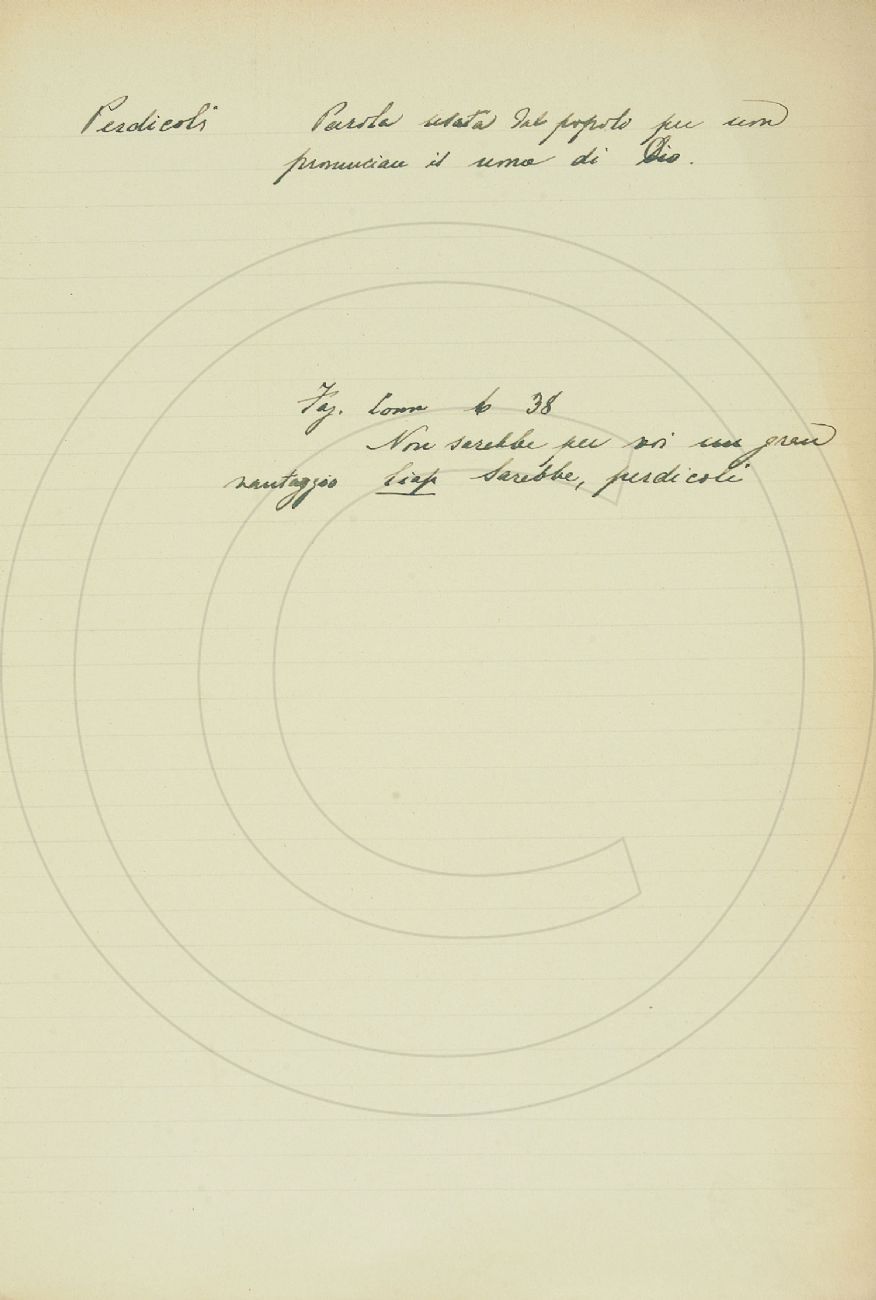 Perdicoli Parola usata dal popolo per non
pronunciare il nome di Dio.
Fag. Comm 6 38
Non sarebbe per voi un gran
vantaggio Ciap Sarebbe, perdicoli